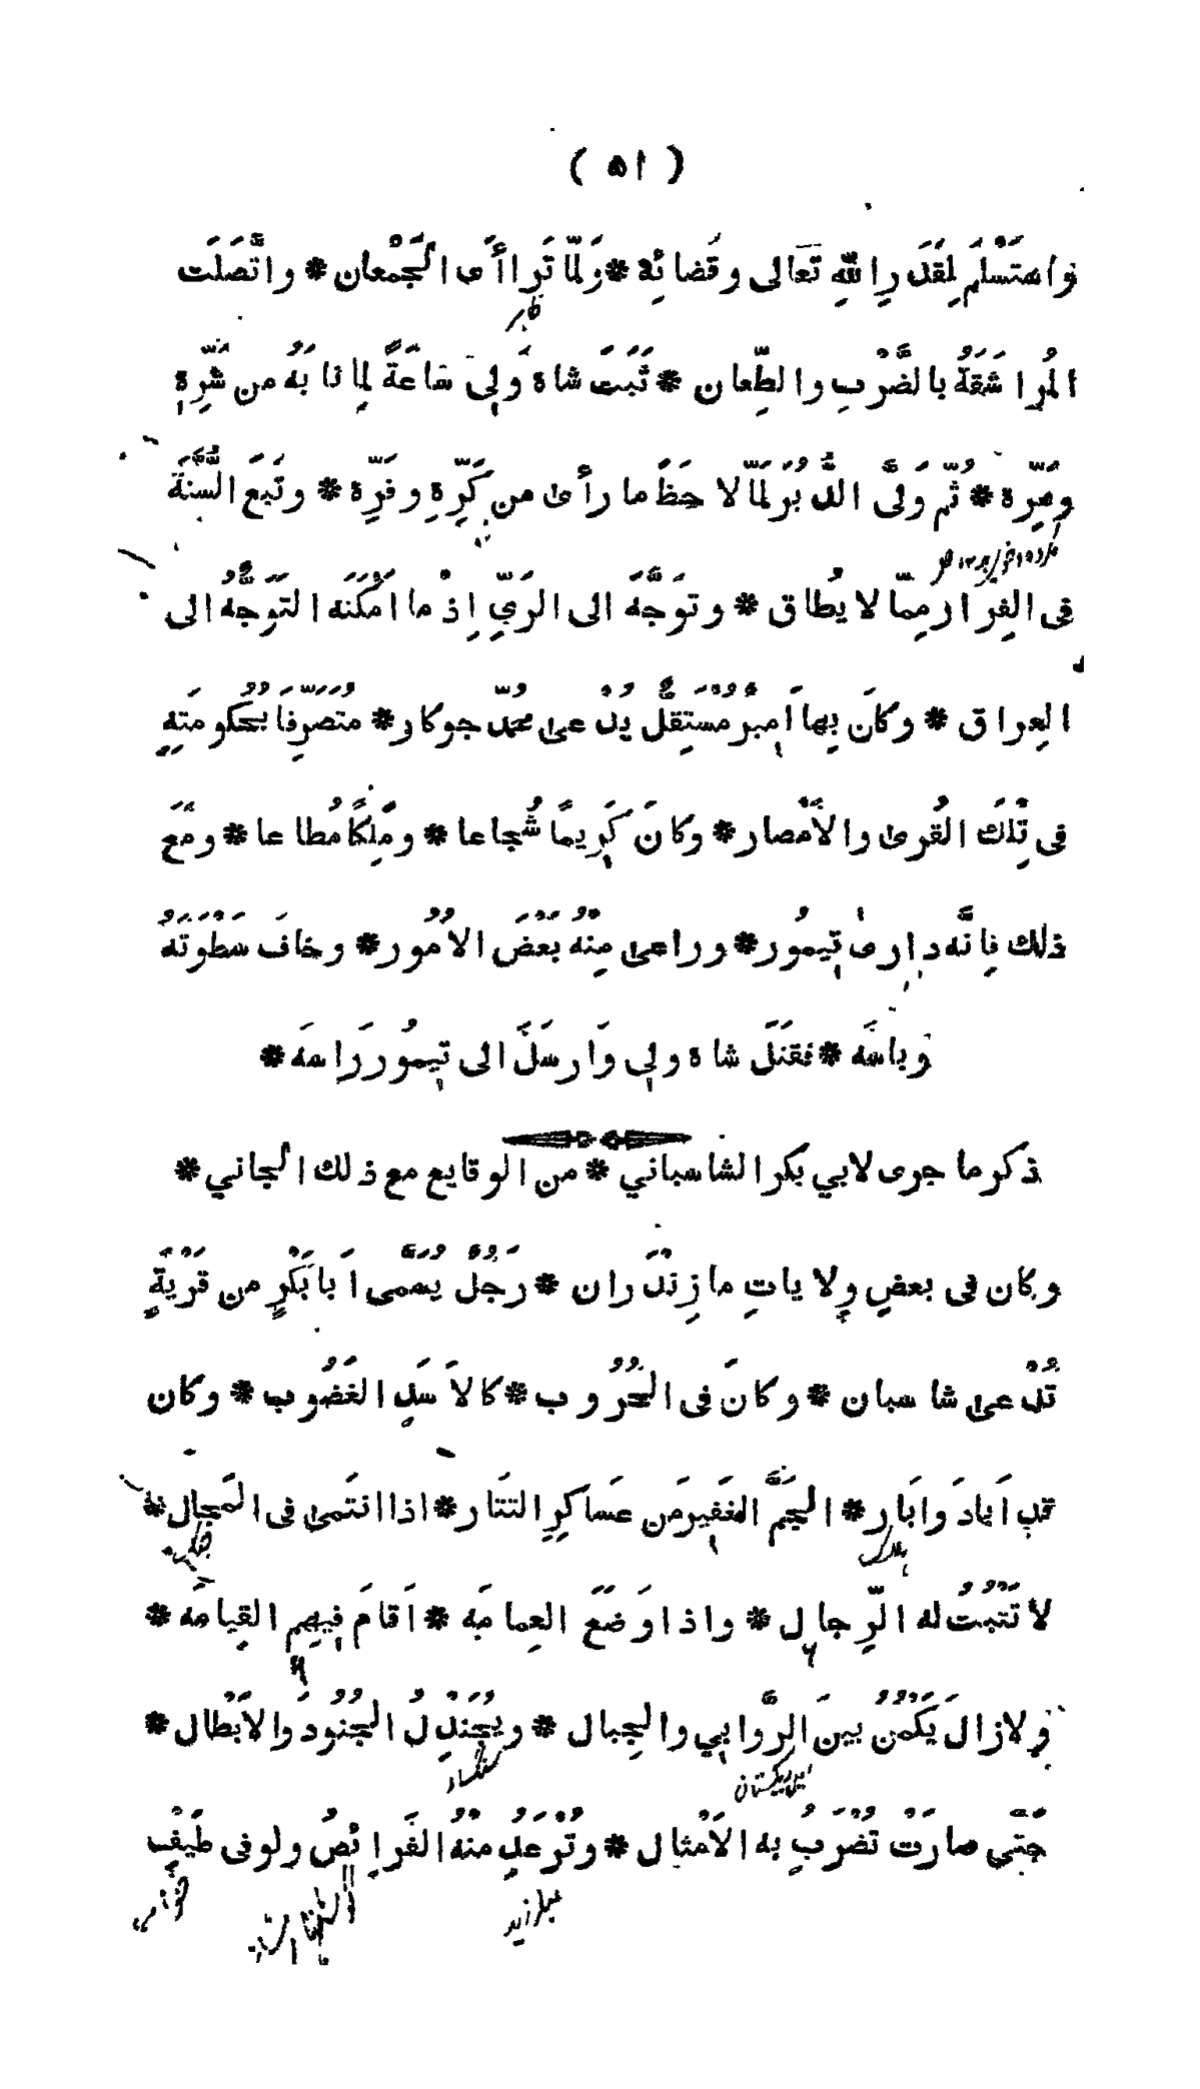 ( ٥١ )
واستَسْلَمَ لِقَدَرِ اللّٰهِ تَعالى وقَضائِهِ * ولَمّا تَرا أَى الجَمْعان * واتَّصَلَت
المُراشَقَةُ بالضَّرْبِ والطِّعان * ثَبَتَ شاه وَلِي سَاعَةً لِما نابَهُ من شِرَّةٍ
ومَرَّة * ثُمَّ ولّى الدُّبُرَ لَمّا لاحَظَ ما رأى من كَرَّةٍ وفَرَّة * وتَبَعَ السُّنَّةَ
في الفِرارِ مِمّا لا يُطاق * وتوَجَّهَ الى الرَيِّ إِذْ ما امْكَنَه التوَجُّهُ الى
العِراق * وكانَ بِها اَمِيرٌ مُسْتَقِلٌّ يُدْعى محمّد جوكار * مُتَصَرِّفًا بحُكومَتِهِ
في تِلْكَ القُرى والاَمْصار * وكانَ كَرِيمًا شُجاعا * ومَلِكًا مُطاعا * ومَع
ذلك فاِنَّه دارى تِيمُور * وراعى مِنْهُ بَعْضَ الاُمُور * وخافَ سَطْوَتَهُ
وباسَه * فقَتَلَ شاه ولي وَارسَلَ الى تِيمُور رَاسَه *
ذكر ما جرى لابي بكر الشاسباني * من الوقايع مع ذلك الجاني *
وكان في بعضِ وِلاياتِ مازِنْدَران * رَجُلٌ يُسَمّى اَبابَكْرٍ من قَرْيَةٍ
تُدْعى شاسبان * وكانَ في الحُرُوب * كالاَسَدِ الغَضُوب * وكان
قد اَبادَ واَبار * الجَمَّ الغَفِيرَ من عَساكِرِ التتار * اذا انتَمى في المَجال *
لا تَثْبُتُ له الرِّجال * واذا وَضَعَ العِمامَه * اَقامَ فِيهِم القِيامَه *
ولا زالَ يَكْمُنُ بينَ الرَّوابِي والجِبال * ويُجَنْدِلُ الجُنُودَ والاَبْطال *
حَتّى صارَتْ تُضْرَبُ به الاَمْثال * وتُرْعَدُ منْهُ الفَرائِصُ ولو في طَيْفِ